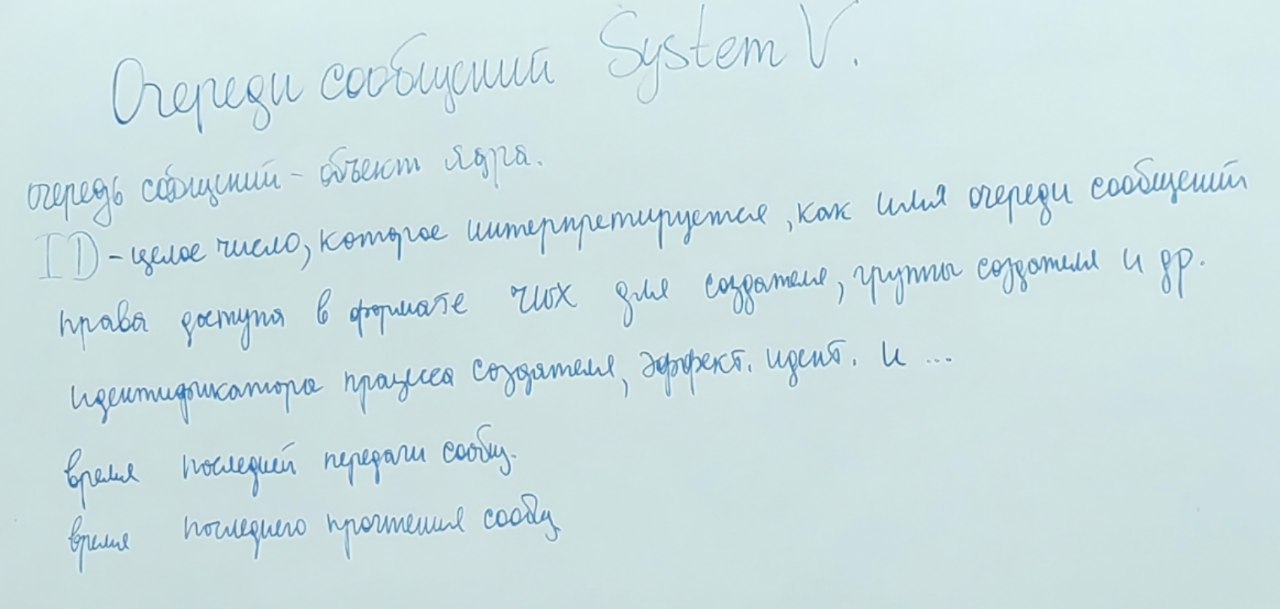 Очереди сообщений System V.
очередь сообщений - объект ядра.
ID - целое число, которое интерпретируется, как имя очереди сообщений
права доступа в формате чтх для создателя, группы создателя и др.
идентификатора процесса создателя, эффект. идент. и ...
время последней передачи сообщ.
время последнего прочтения сообщ